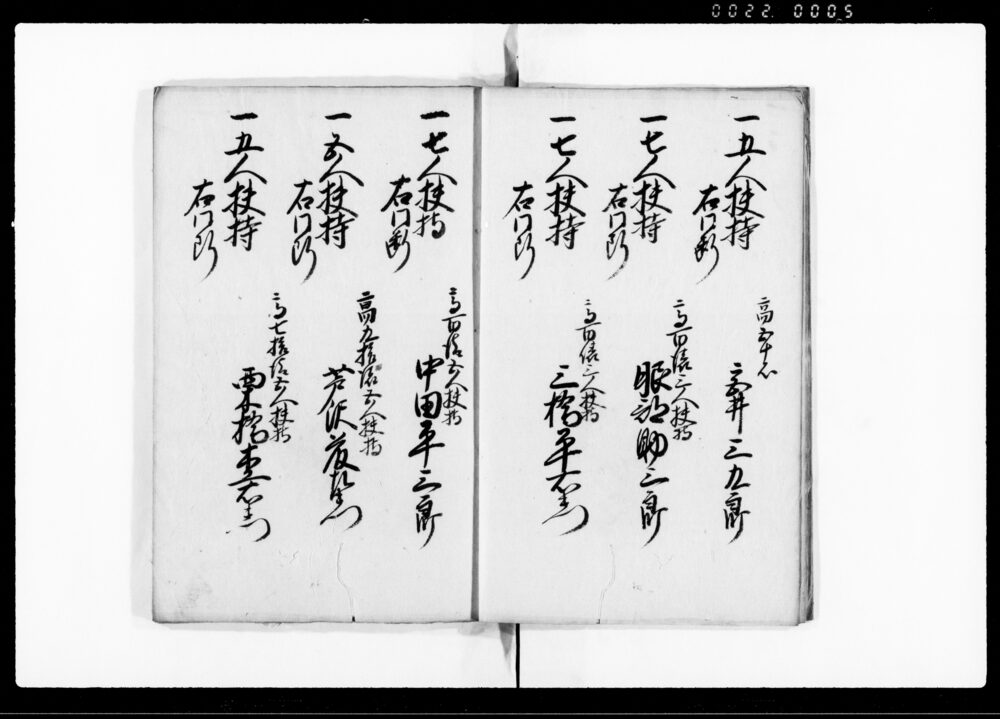 0022 0005
一五人扶持
右同断
高五十石
三井三九郎
一七人扶持
右同断
高百俵三人扶持
服部助三郎
一七人扶持
右同断
高百俵三人扶持
三橋平右衛門
一七人扶持
右同断
高百俵五人扶持
中田平三郎
一五人扶持
右同断
高九拾俵五人扶持
芦沢
一五人扶持
右同断
高七拾俵五人扶持
栗橋